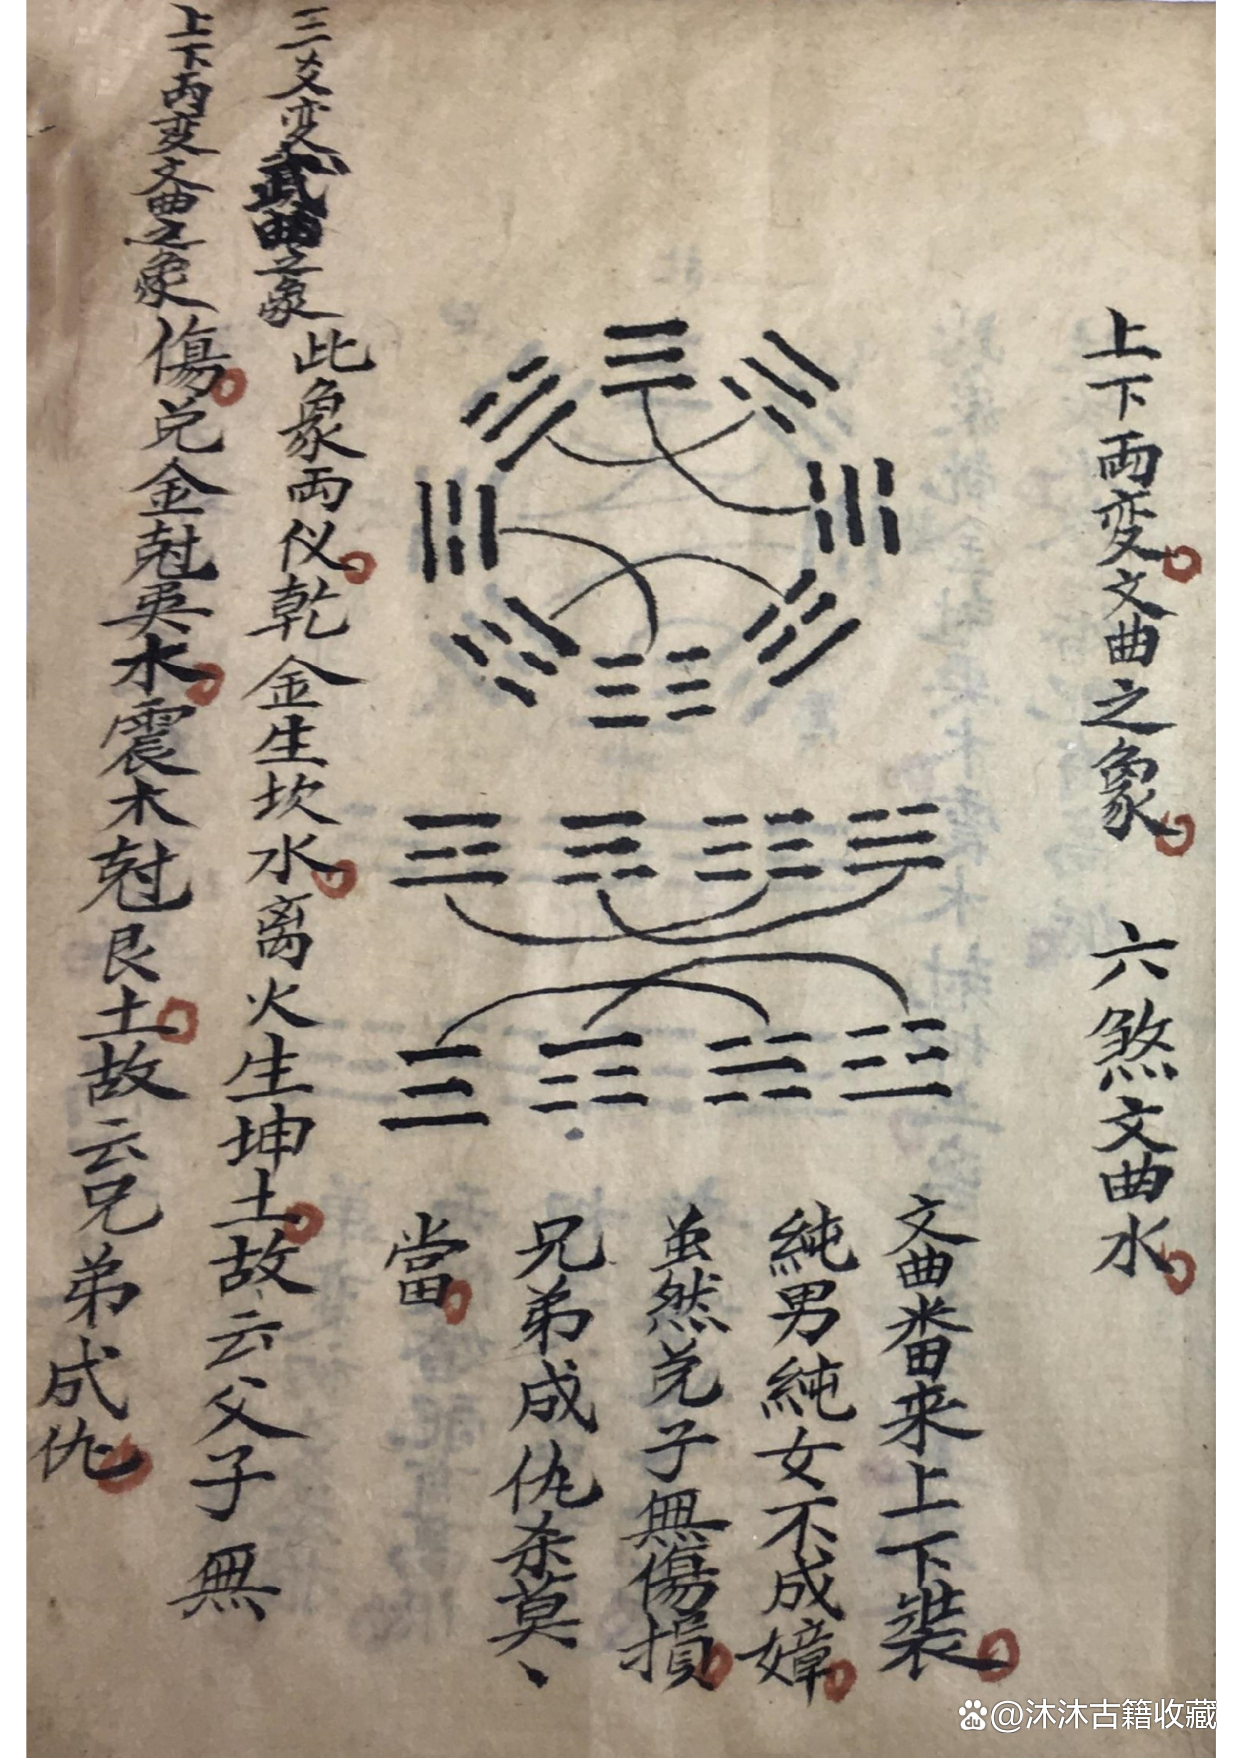 上下両变文曲之象 六煞文曲水
文曲畨来上下裝
純男純女不成嫜
虽然兑子無傷損
兄弟成仇杀莫、
當
三爻变武曲之象
此象両仪乾金生坎水离火生坤土故云父子無
上下両变文曲之象
傷兑金尅巽木震木尅艮土故云兄弟成仇
@沐沐古籍收藏